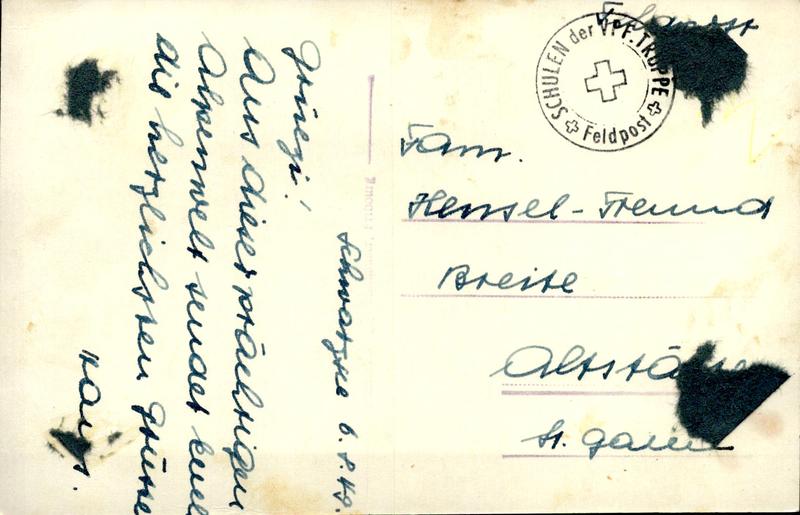 Schwarzsee 6.8.49.
Grüezi!
Aus dieser prächtigen
Alpenwelt sendet Euch
die herzlichsten Grüsse
Hans.
Feldpost
SCHULEN der VPF. TRUPPE
Feldpost
Fam.
Hensel-Freund
Breite
Altstätten
St. Gallen